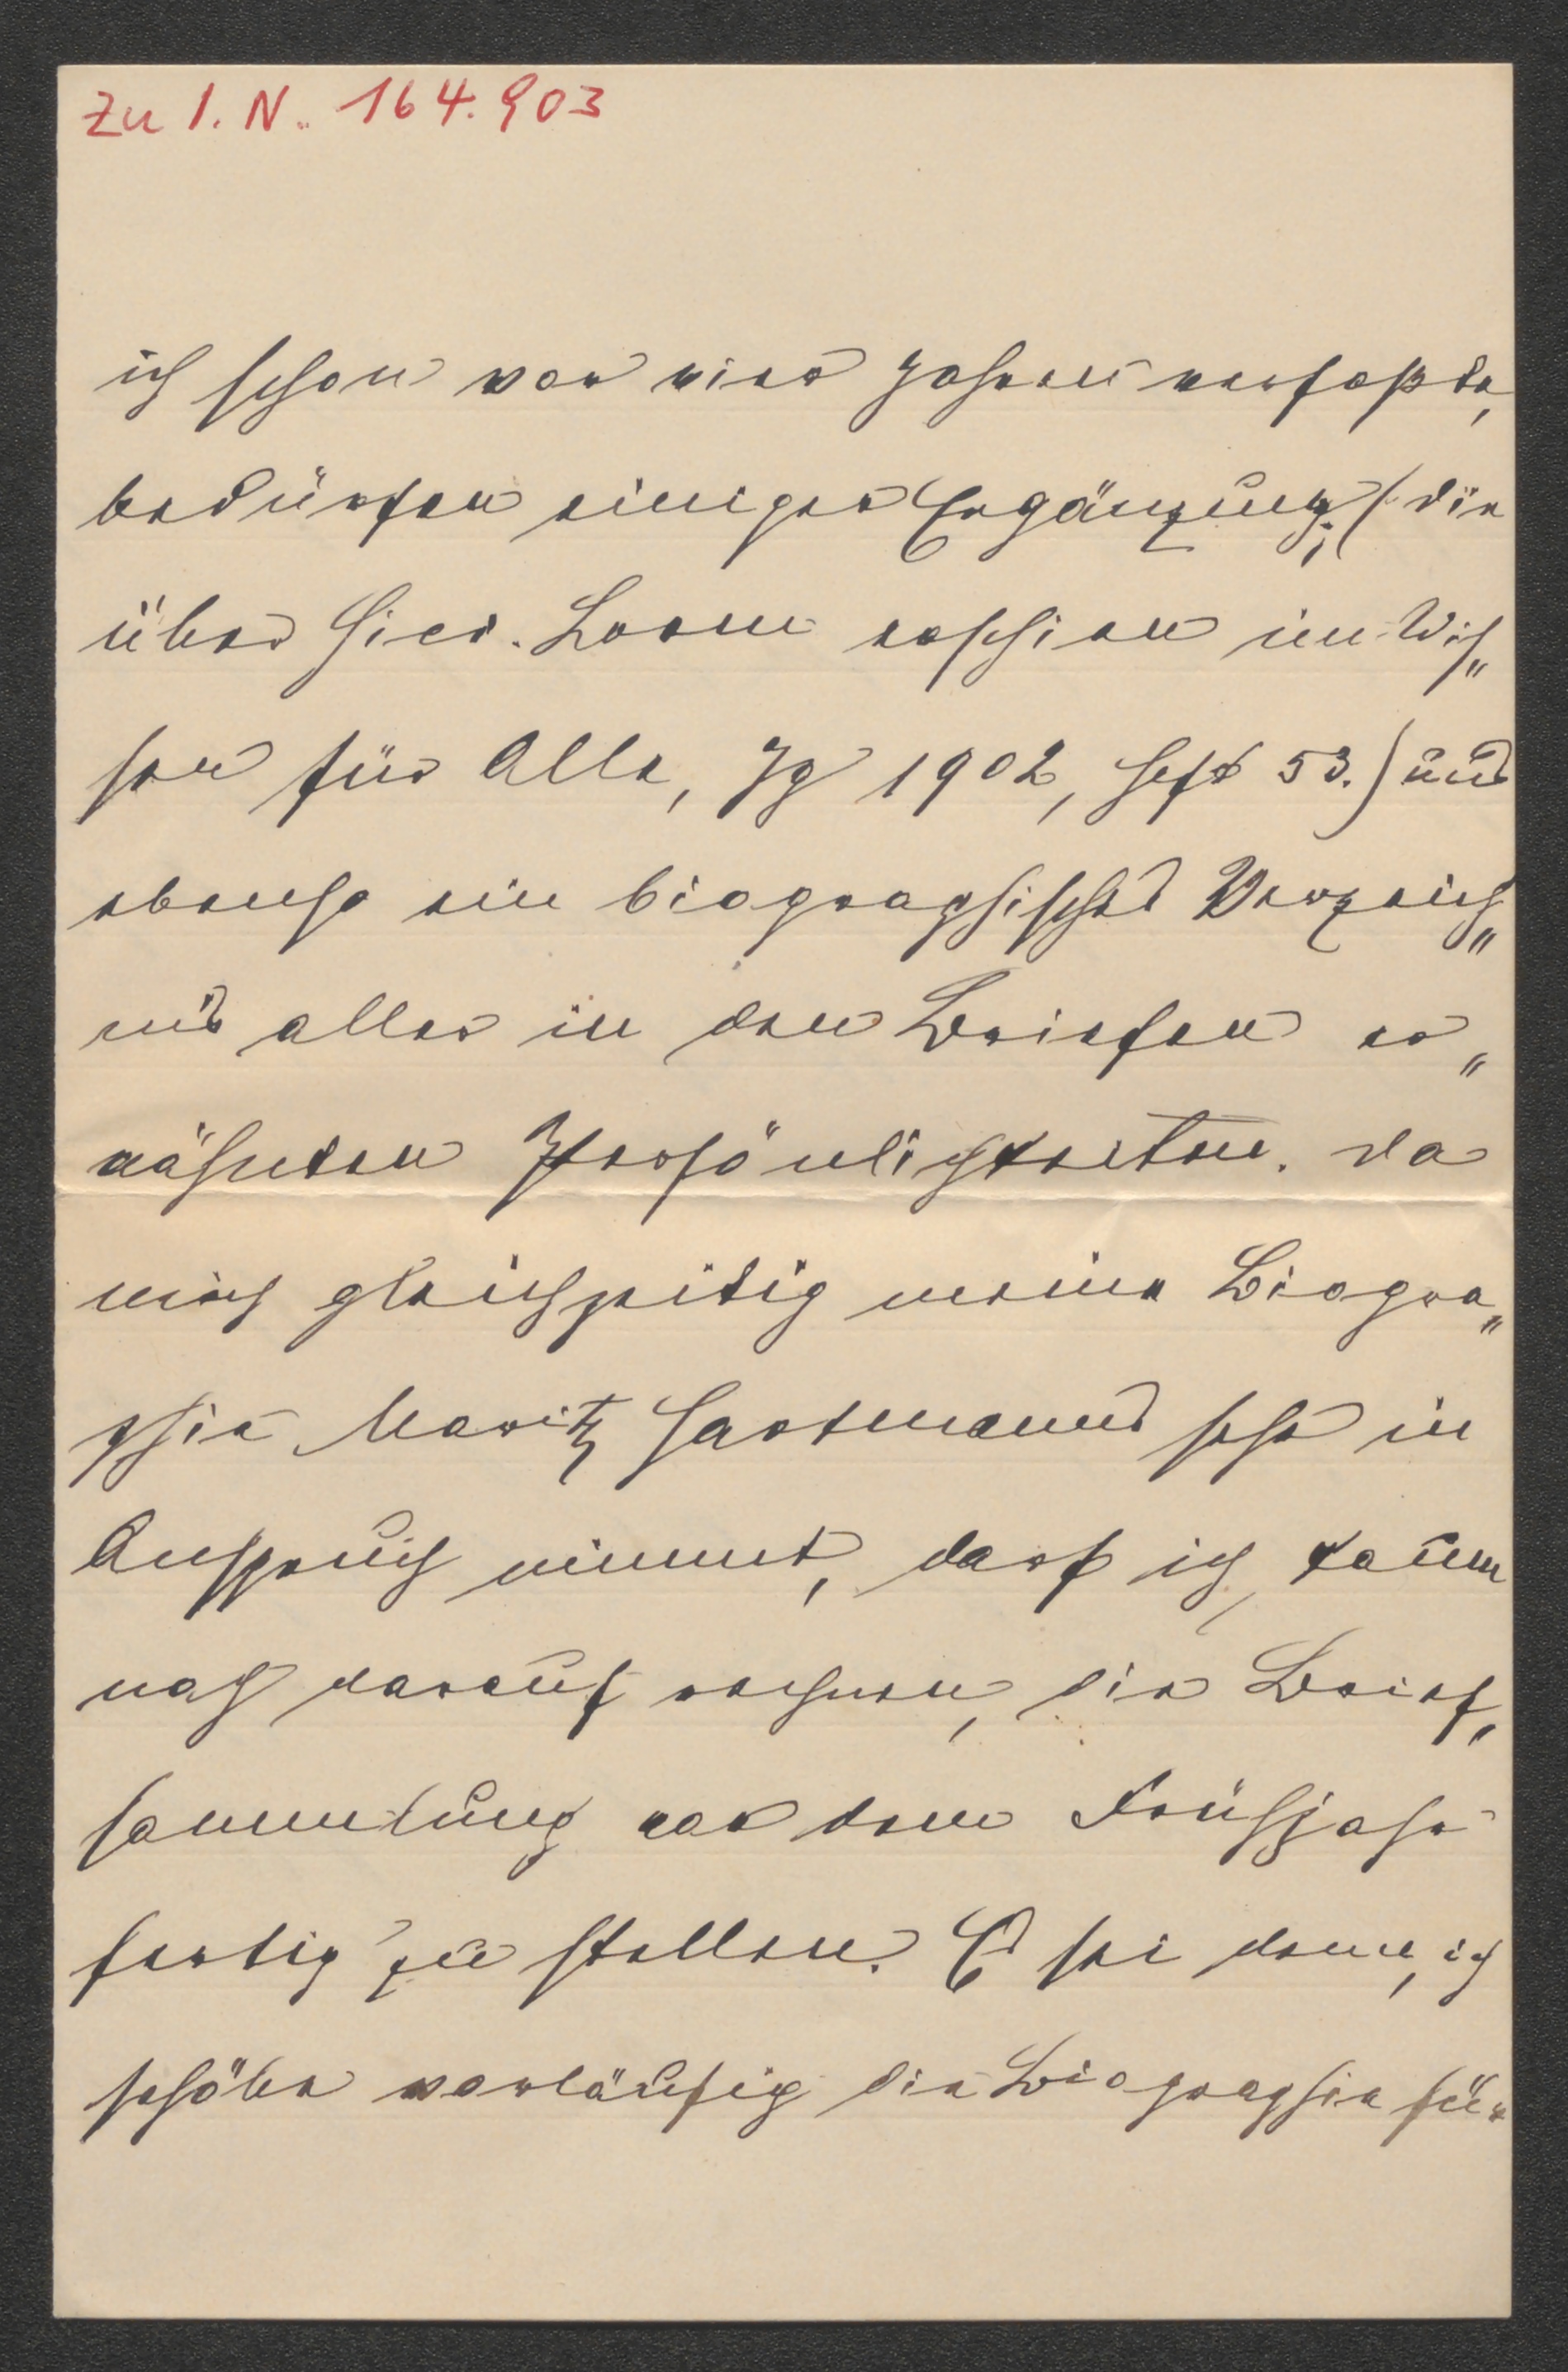 Zu I. N. 164.903
ich schon vor vier Jahren verfaßte,
bedürfen einiger Ergänzung; (die
über Hier. Lorm erschien im Wis„
sen für Alle, Jg 1902, Heft 53.) und
ebenso ein biographisches Verzeich„
nis aller in den Briefen er„
wähnten Persönlichkeiten. Da
mich gleichzeitig meine Biogra„
phie Moritz Hartmanns sehr in
Anspruch nimmt, darf ich kaum
noch darauf rechnen, die Brief„
sammlung vor dem Frühjahr
fertig zu stellen. Es sei denn, ich
schöbe vorläufig die Biographie für